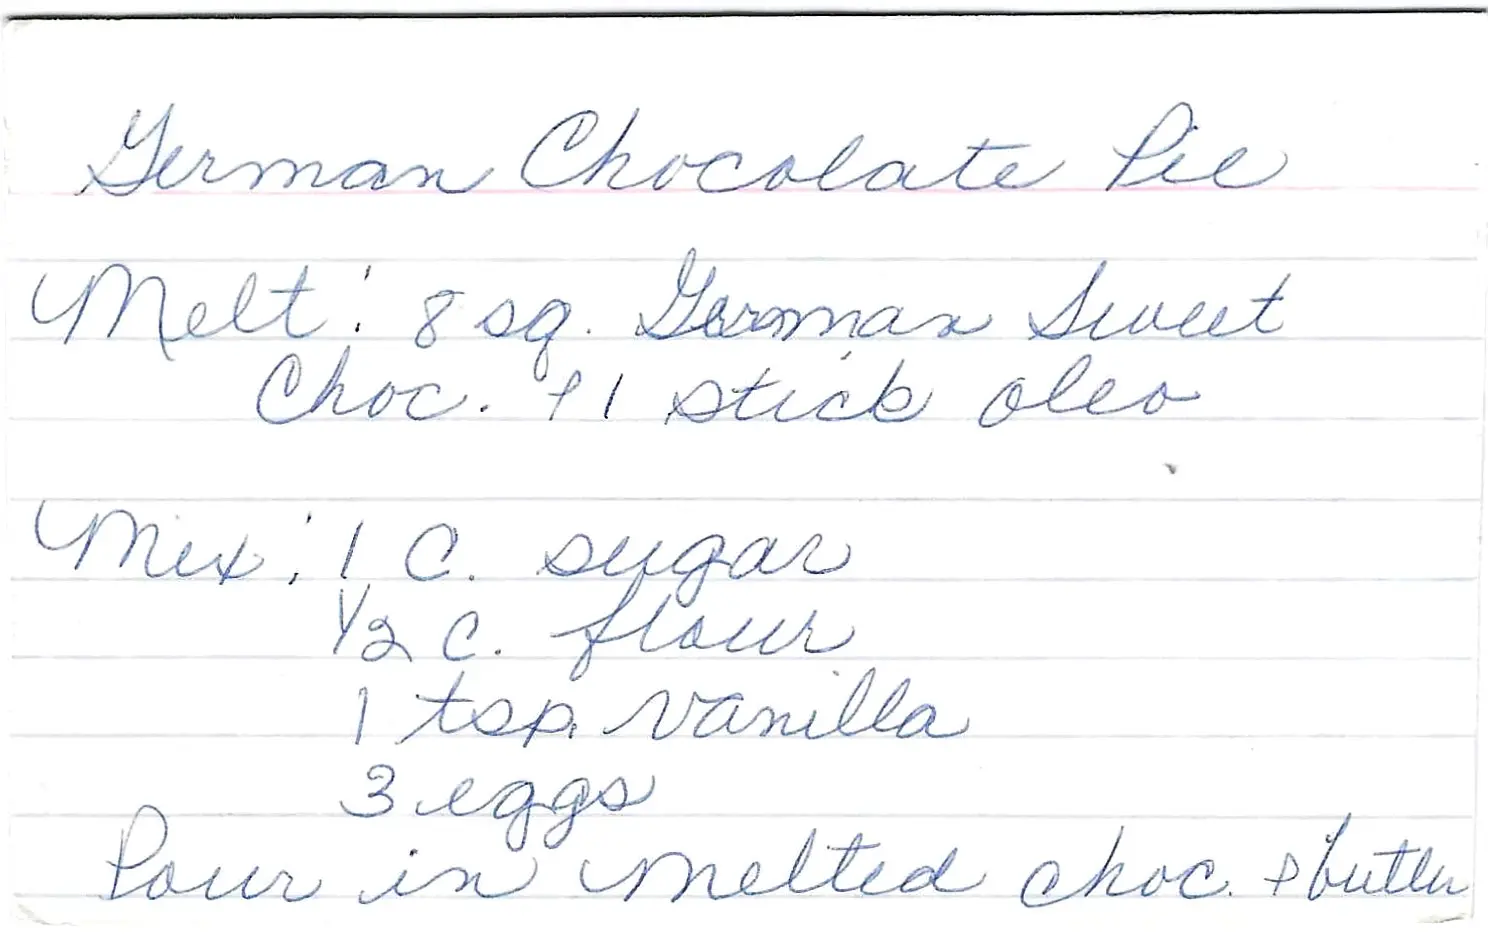 German Chocolate Pie
Melt: 8 sq. German Sweet
Choc. + 1 stick oleo
Mix: 1 C. sugar
1/2 C. flour
1 tsp. vanilla
3 eggs
Pour in melted choc. + butter